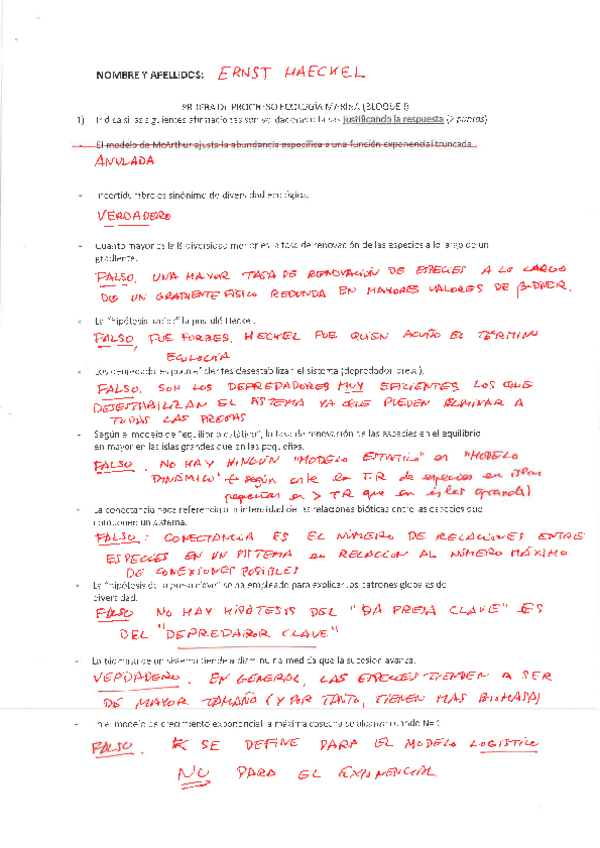 NOMBRE Y APELLIDOS: ERNST HAECKEL
PRUEBA DE PROGRESO ECOLOGÍA MARINA (BLOQUE I)
1) Indica si las siguientes afirmaciones son verdaderas o falsas justificando la respuesta (2 puntos)
- El modelo de McArthur ajusta la abundancia específica a una función exponencial truncada.
ANULADA
- Incertidumbre es sinónimo de diversidad ecológica.
VERDADERO
- Cuanto mayor es la ß diversidad menor es la tasa de renovación de las especies a lo largo de un
gradiente.
FALSO, UNA MAYOR TASA DE RENOVACIÓN DE ESPECIES A LO LARGO
DE UN GRADIENTE FÍSICO REDUNDA EN MAYORES VALORES DE β-DIVER.
- La "hipótesis azoica" la postuló Heckel.
FALSO, FUE FORBES. HECKEL FUE QUIEN ACUÑO EL TÉRMINO
ECOLOGÍA
- Los depredadores poco eficientes desestabilizan el sistema (depredador-presa).
FALSO. SON LOS DEPREDADORES MUY EFICIENTES LOS QUE
DESESTABILIZAN EL SISTEMA YA QUE PUEDEN ELIMINAR A
TODAS LAS PRESAS
- Según el modelo de "equilibrio estático", la tasa de renovación de las especies en el equilibrio
en mayor en las islas grandes que en las pequeñas.
FALSO. NO HAY NINGÚN "MODELO ESTÁTICO" es "MODELO
DINÁMICO" + según este la T.R de especies en islas
pequeñas en > TR que en islas grandes)
- La conectancia hace referencia a la intensidad de las relaciones bióticas entre las especies que
componen un sistema.
FALSO: CONECTANCIA ES EL NÚMERO DE RELACIONES ENTRE
ESPECIES EN UN SISTEMA en RELACION AL NÚMERO MÁXIMO
DE CONEXIONES POSIBLES
- La "hipótesis de la presa clave" se ha empleado para explicar los patrones globales de
diversidad.
FALSO NO HAY HIPÓTESIS DEL "LA PRESA CLAVE" ES
DEL "DEPREDADOR CLAVE"
- La biomasa de un sistema tiende a disminuir a medida que la sucesión avanza.
VERDADERO. EN GENERAL, LAS ESPECIES TIENDEN A SER
DE MAYOR TAMAÑO (Y POR TANTO, TIENEN MAS BIOMASA)
- En el modelo de crecimiento exponencial la máxima cosecha se alcanza cuando N=
FALSO. K SE DEFINE PARA EL MODELO LOGISTICO
NO PARA EL EXPONENCIAL